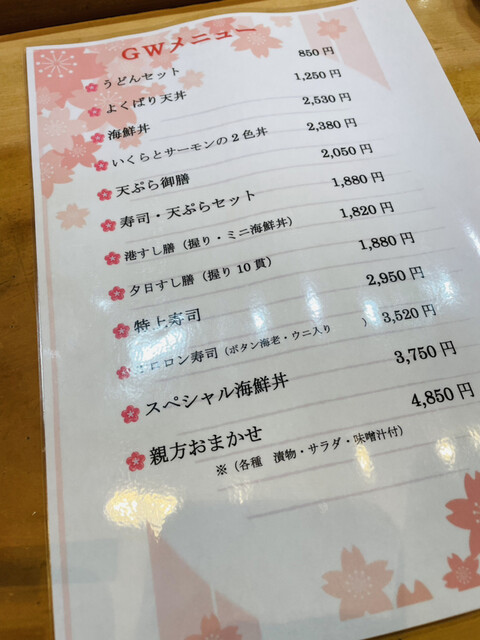 GWメニュー
うどんセット 850円
よくばり天丼 1,250円
海鮮丼 2,530円
いくらとサーモンの2色丼 2,380円
天ぷら御膳 2,050円
寿司・天ぷらセット 1,880円
港すし膳（握り・ミニ海鮮丼） 1,820円
夕日すし膳（握り10貫） 1,880円
特上寿司 2,950円
ロン寿司（ボタン海老・ウニ入り ） 3,520円
スペシャル海鮮丼 3,750円
親方おまかせ 4,850円
※（各種 漬物・サラダ・味噌汁付）